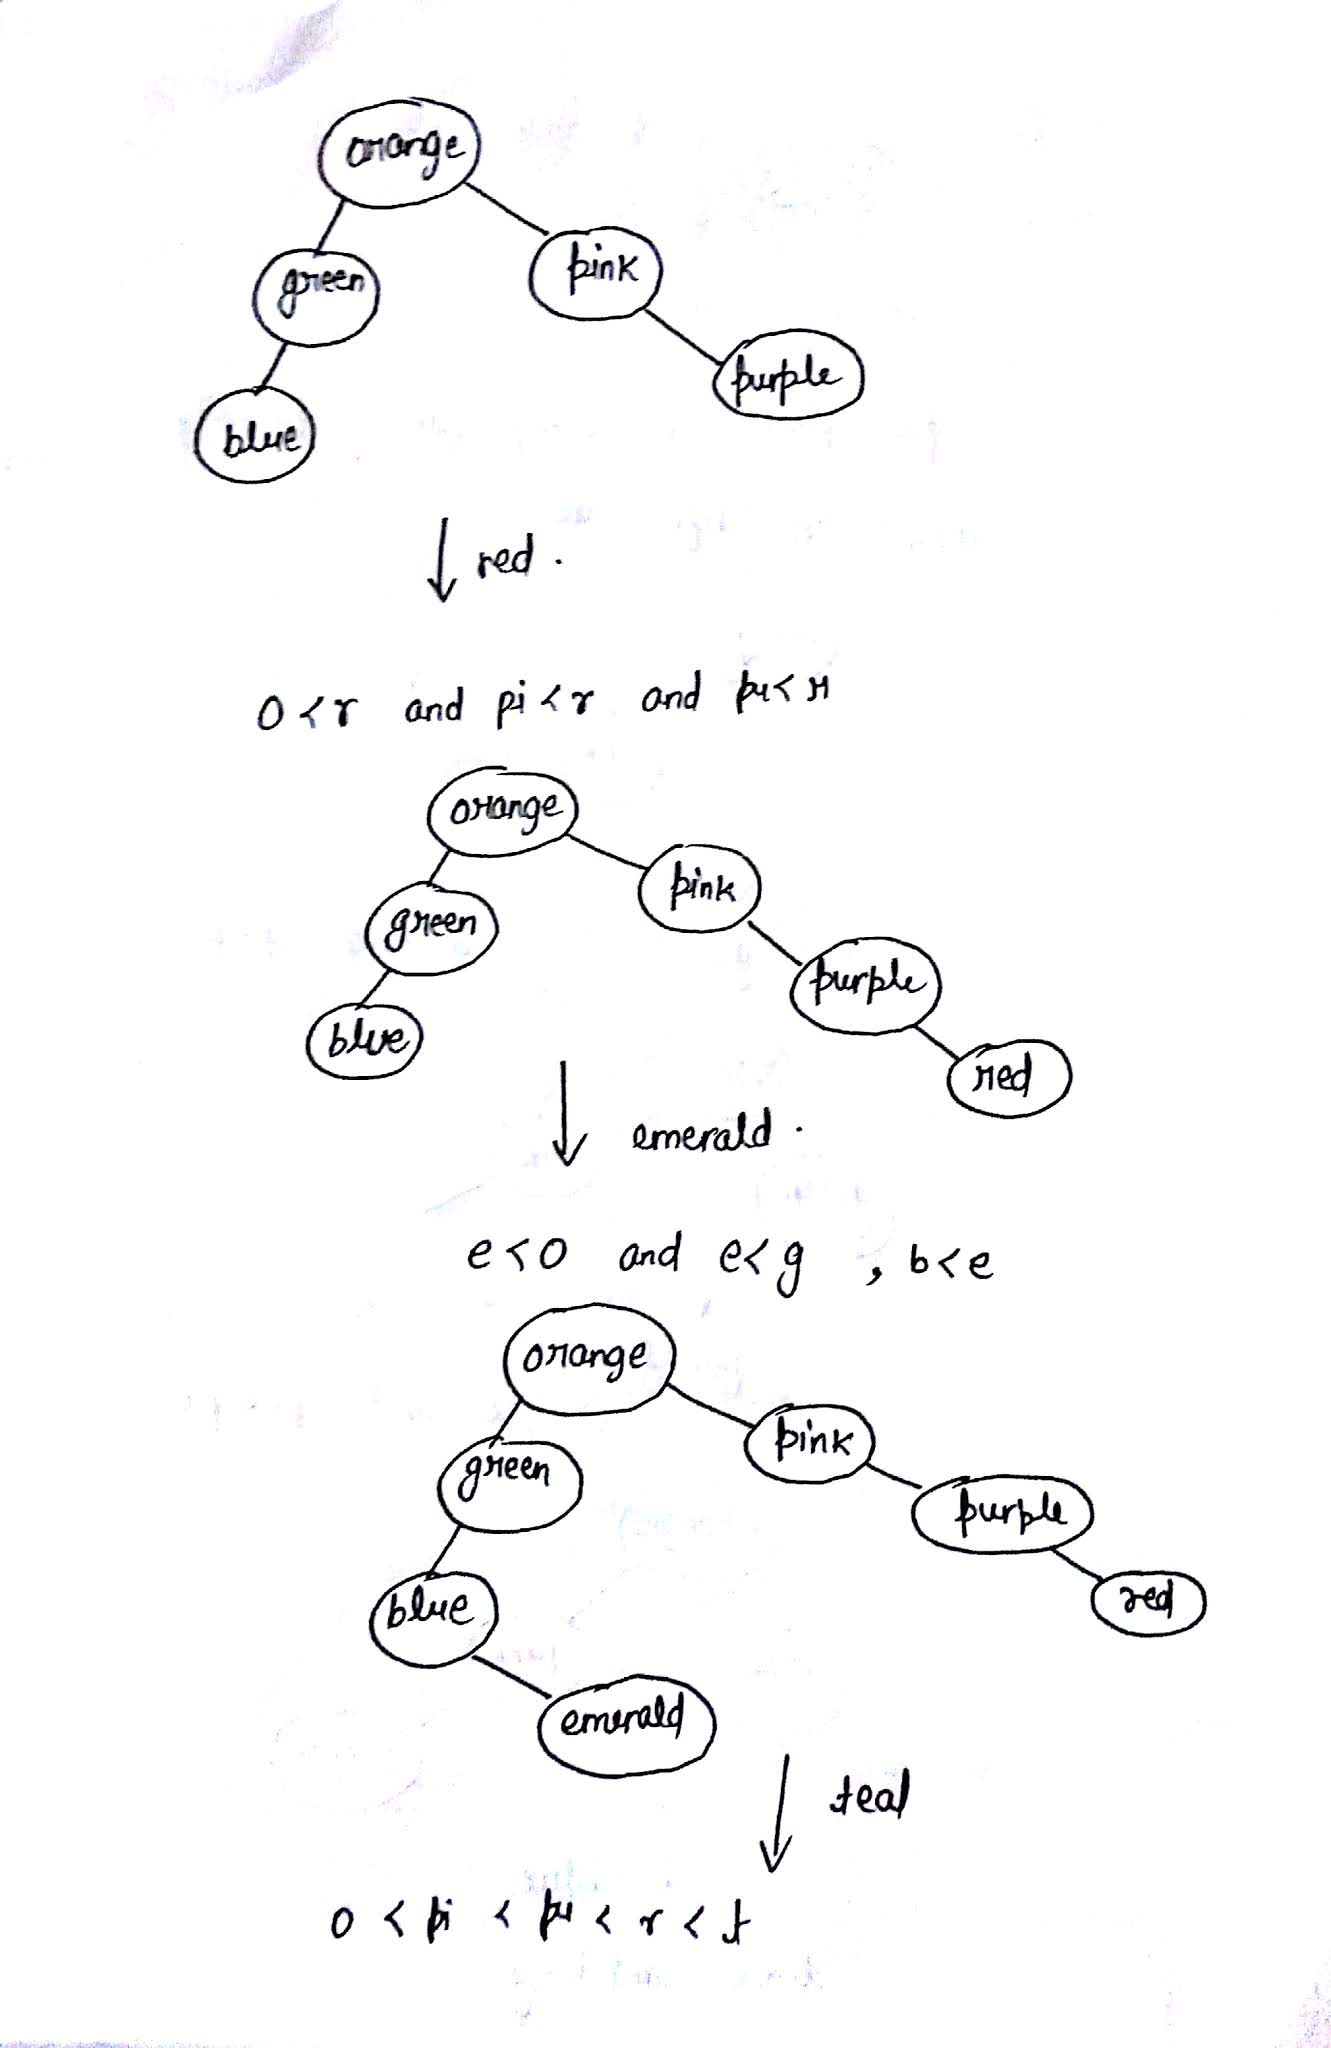 orange
green pink
blue purple
red .
O < r and pi < r and pu < r
orange
green pink
blue purple
red
emerald .
e < O and e < g , b < e
orange
green pink
blue purple
red
emerald
teal
O < pi < pu < r < t